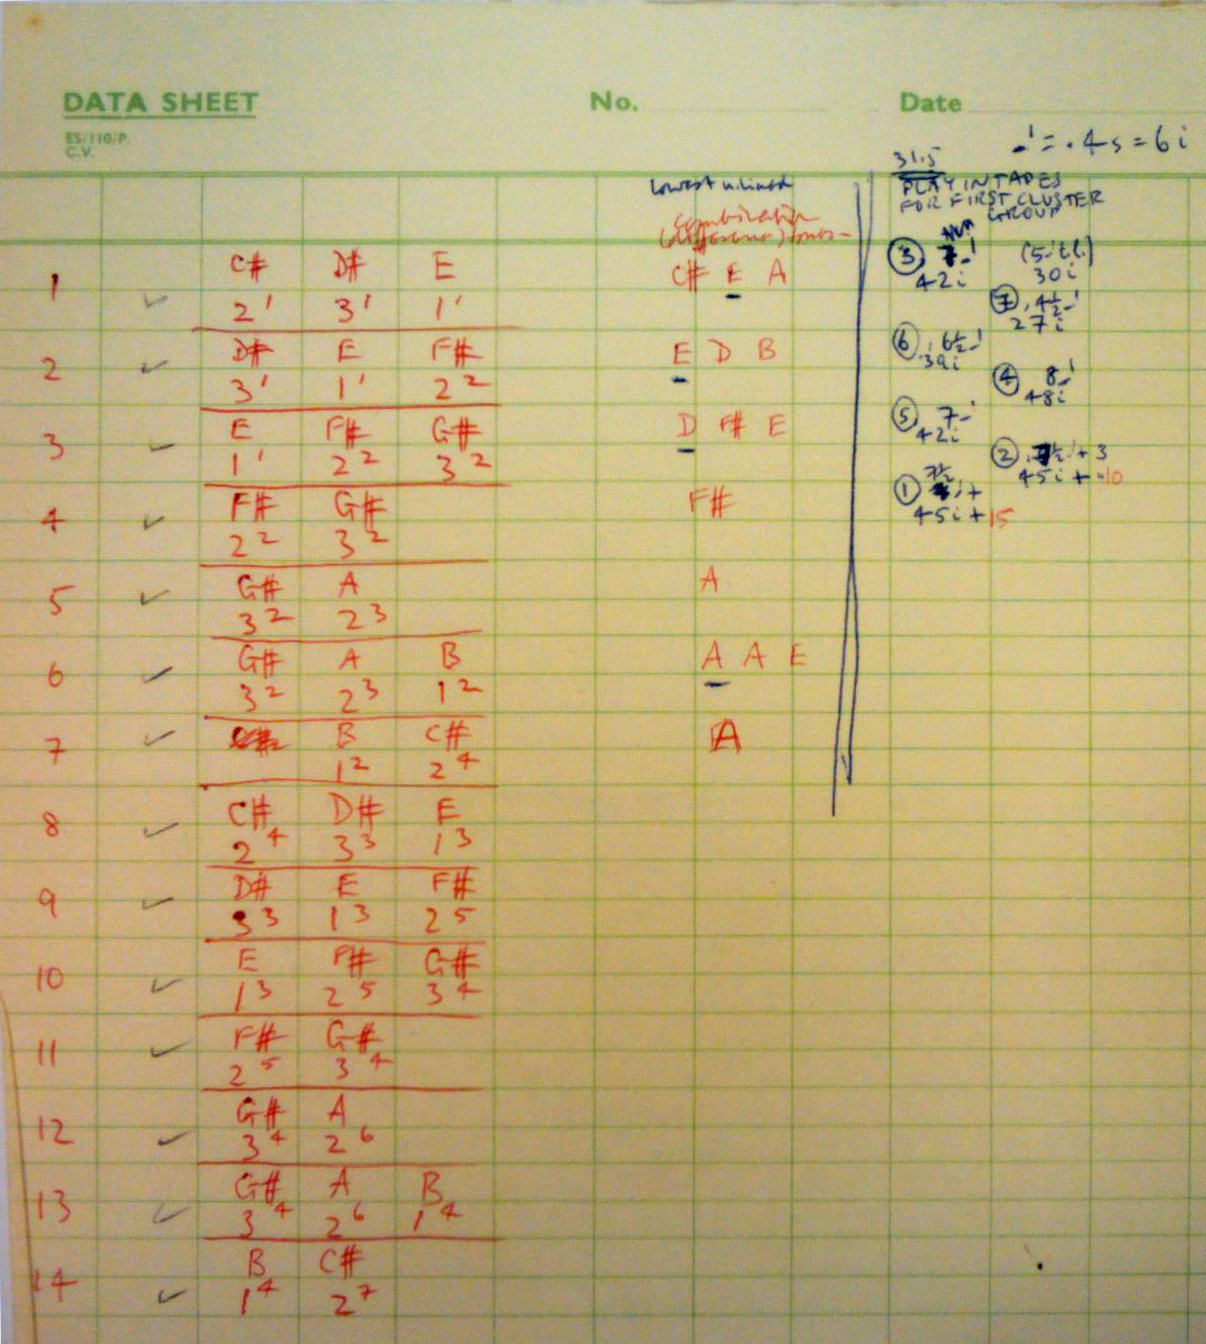 DATA SHEET
No.
Date
ES/110/P.
C.V.
= .4s = 6i
31.5
PLAY IN TAPES
FOR FIRST CLUSTER
GROUP
Lowest u.lined
combination
(difference) tones
1 ✓ C# D# E C# E A
2' 3' 1'
2 ✓ D# E F# E D B
3' 1' 2²
3 ✓ E F# G# D F# E
1' 2² 3²
4 ✓ F# G# F#
2² 3²
5 ✓ G# A A
3² 2³
6 ✓ G# A B A A E
3² 2³ 1²
7 ✓ B C# A
1² 2⁴
8 ✓ C# D# E
2⁴ 3³ 1³
9 ✓ D# E F#
3³ 1³ 2⁵
10 ✓ E F# G#
1³ 2⁵ 3⁴
11 ✓ F# G#
2⁵ 3⁴
12 ✓ G# A
3⁴ 2⁶
13 ✓ G# A B
3⁴ 2⁶ 1⁴
14 ✓ B C#
1⁴ 2⁷
③
42i
30i
⑦ 4½
27i
⑥ 6½
39i
④ 8
48i
⑤ 7
42i
② + 3
45i + 10
① 7½
45i + 15